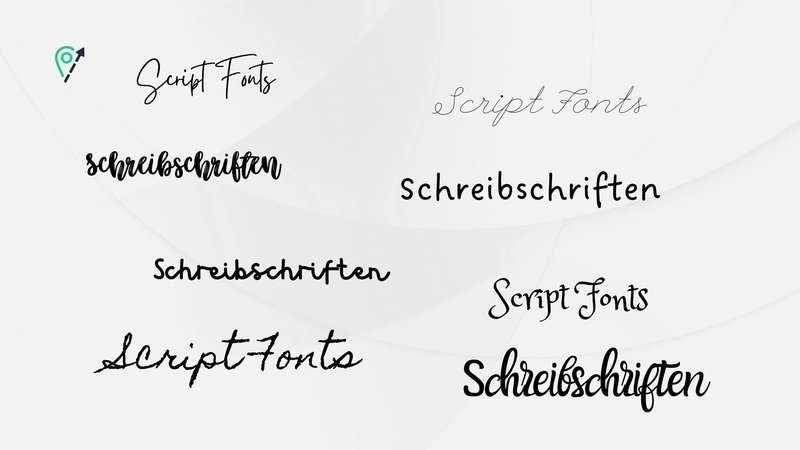 Script Fonts
Script Fonts
schreibschriften
Schreibschriften
Schreibschriften
Script Fonts
Script Fonts
Schreibschriften